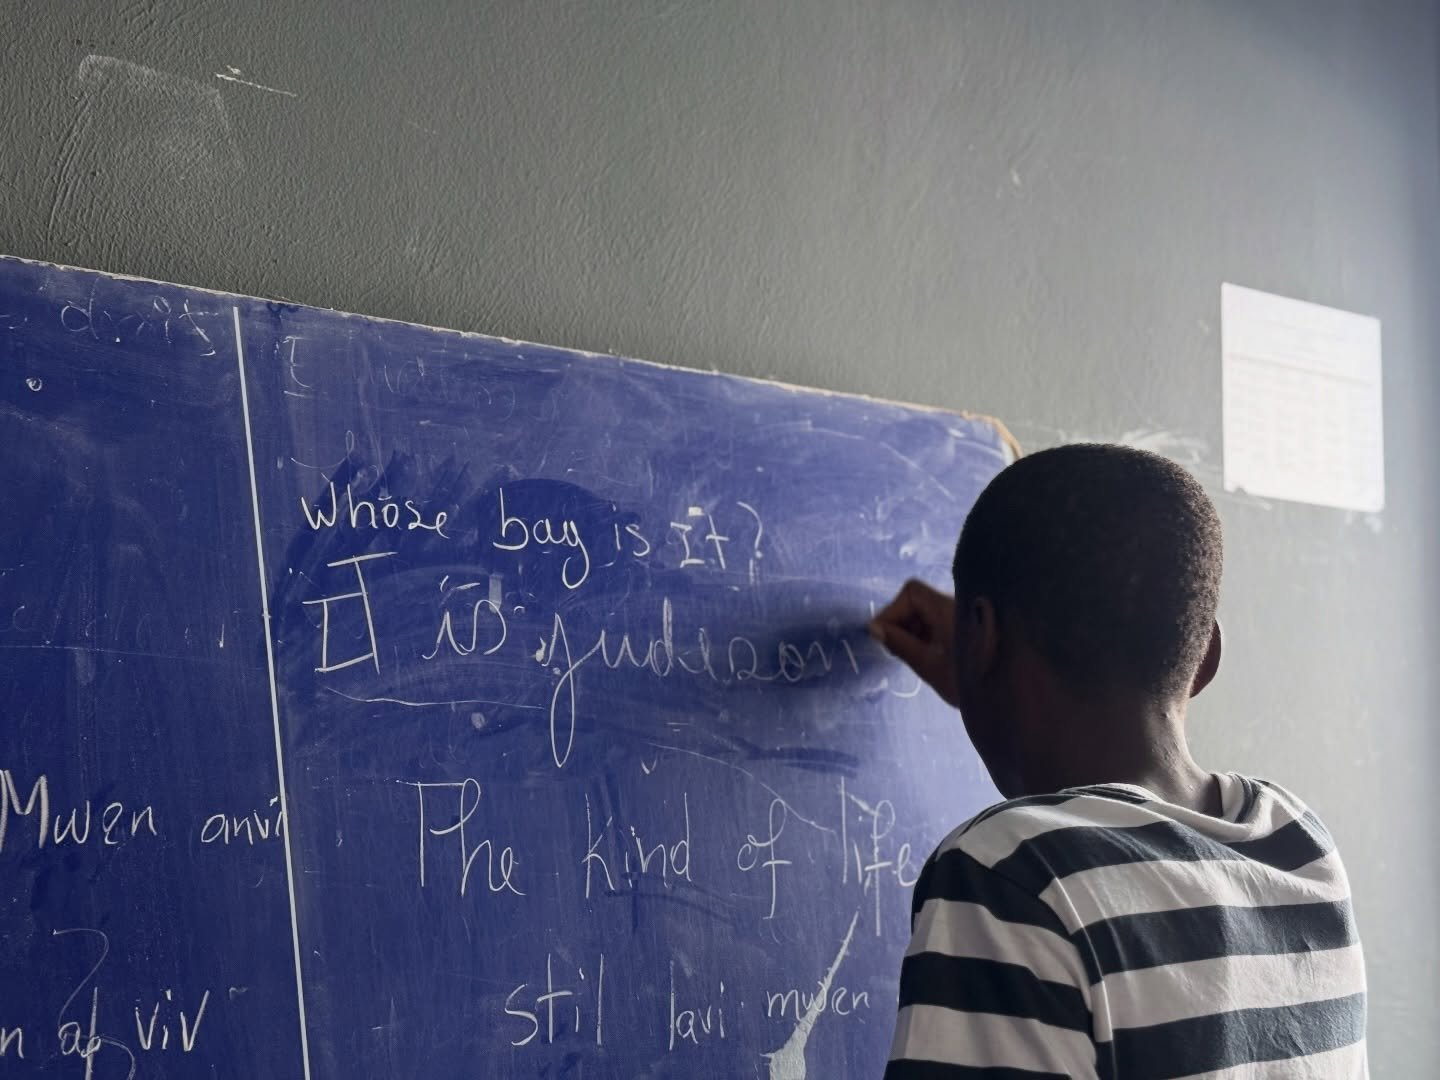 Mwen anvi
viv
whose bag is It?
It is judeson
The kind of life
stil lavi mwen